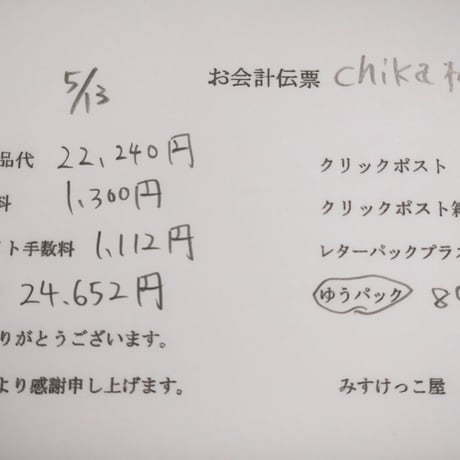 5/13
お会計伝票 chika
品代 22,240円
料 1,300円
イト手数料 1,112円
24.652円
りがとうございます。
より感謝申し上げます。
クリックポスト
クリックポスト箱
レターパックプラス
ゆうパック 80
みすけっこ屋